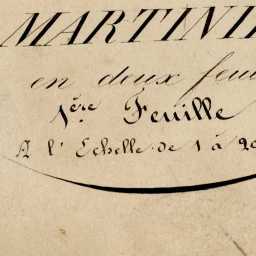 MARTINI
en deux feui
1ère Feuille
A l'Echelle de 1 à 20